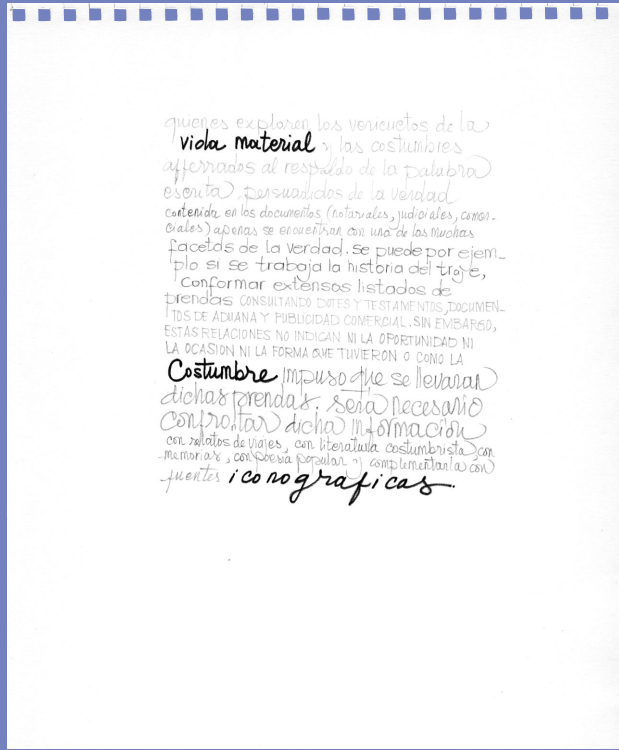 quienes exploren los vericuetos de la
vida material y las costumbres
afferrados al respaldo de la palabra
escrita, persuadidos de la verdad
contenida en los documentos (notariales, judiciales, comer-
ciales) apenas se encuentran con una de las muchas
facetas de la verdad. se puede por ejem-
plo si se trabaja la historia del traje,
conformar extensos listados de
prendas CONSULTANDO DOTES Y TESTAMENTOS, DOCUMEN-
TOS DE ADUANA Y PUBLICIDAD COMERCIAL. SIN EMBARGO,
ESTAS RELACIONES NO INDICAN NI LA OPORTUNIDAD NI
LA OCASION NI LA FORMA QUE TUVIERON O COMO LA
Costumbre impuso que se llevaran
dichas prendas. será necesario
confrontar dicha información
con relatos de viajes, con literatura costumbrista, con
memorias, con poesía popular y complementarla con
fuentes iconograficas.